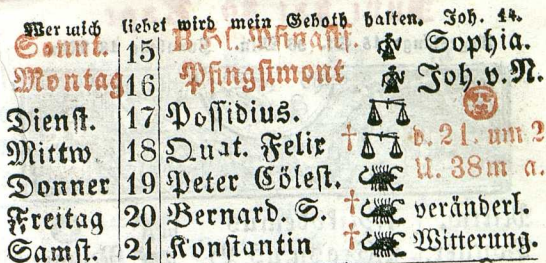 Wer mich liebet wird mein Geboth halten. Joh. 14.
Sonnt. 15 B Hl. Pfingstf. Sophia.
Montag 16 Pfingstmont Joh. v. N.
Dienst. 17 Possidius.
Mittw 18 Quat. Felix † d. 21. um 2
Donner 19 Peter Cölest. U. 38 m a.
Freitag 20 Bernard. S. † veränderl.
Samst. 21 Konstantin † Witterung.